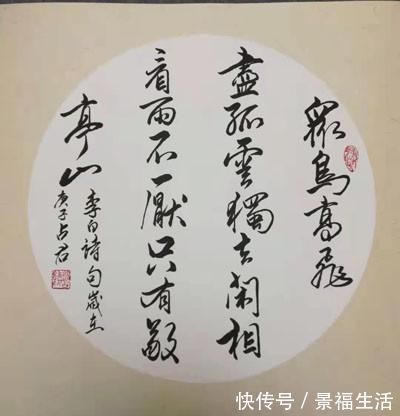 眾鳥高飛
盡孤雲獨去閑相
看兩不厭只有敬
亭山
李白詩句歲在
庚子占君
快传号 / 景福生活